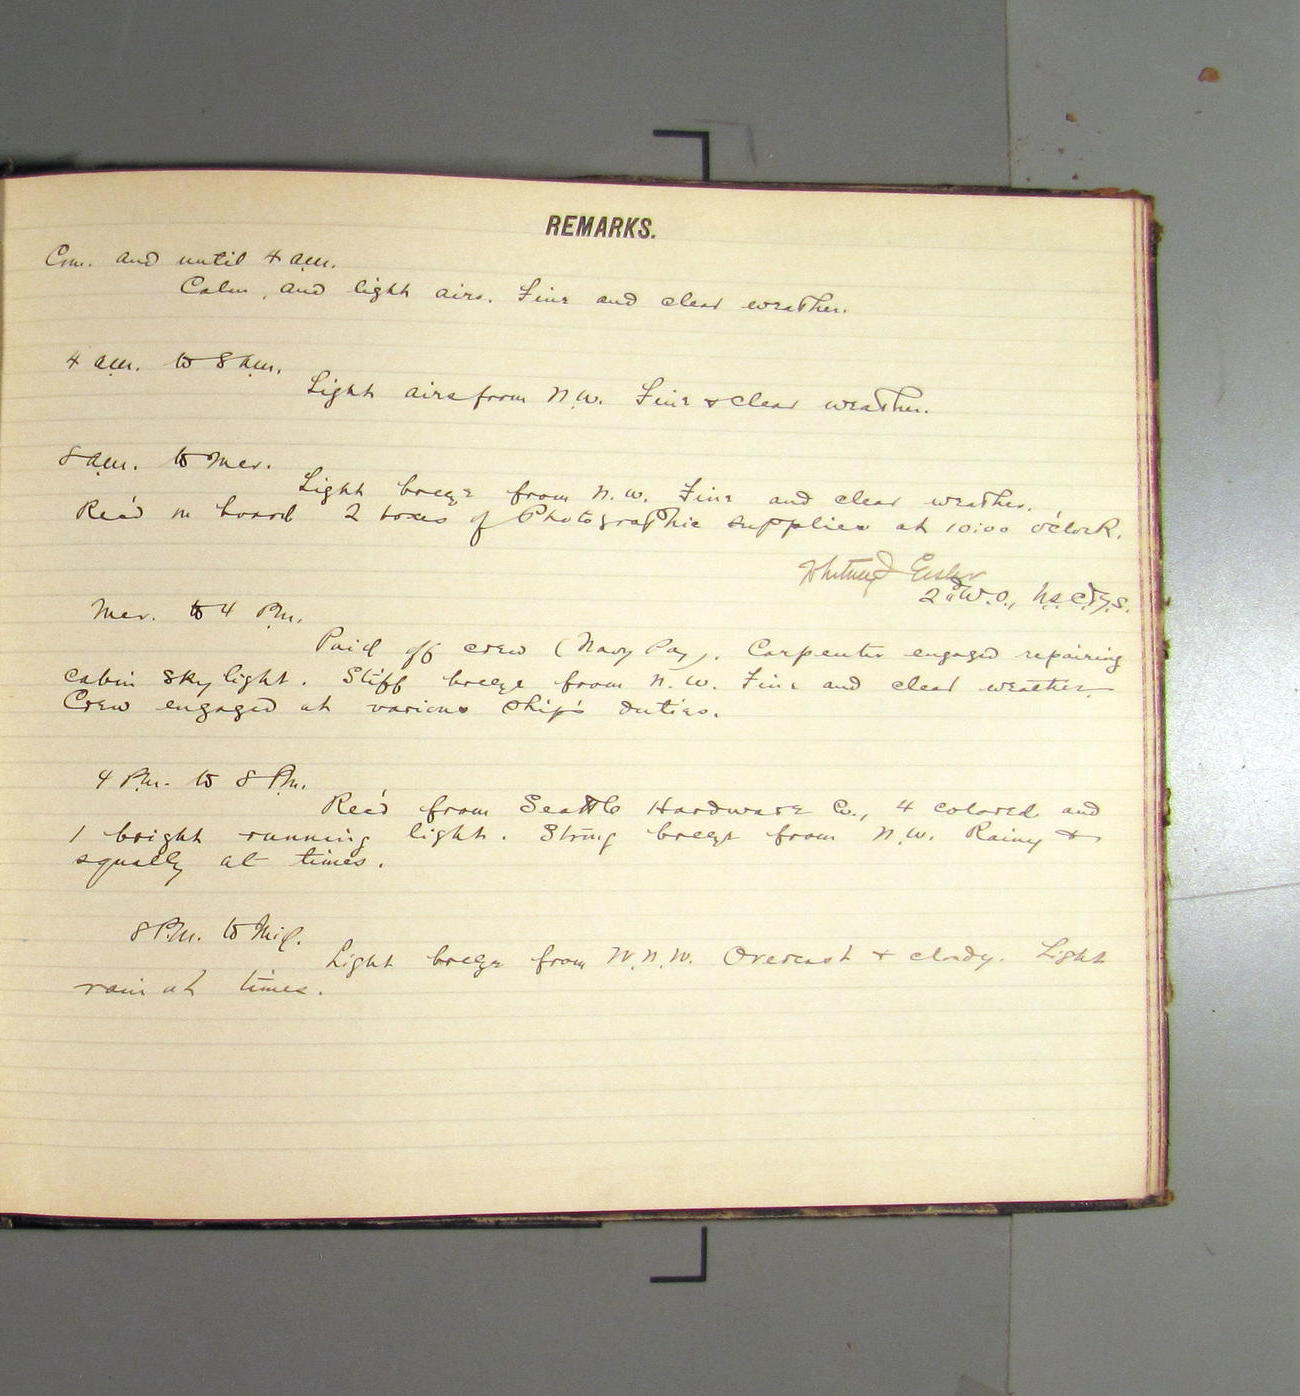 REMARKS.
Com. and until 4 a.m.
Calm, and light airs. Fine and clear weather.
4 a.m. to 8 a.m.
Light airs from N.W. Fine & clear weather.
8 a.m. to Mer.
Light breeze from N.W. Fine and clear weather.
Rec'd on board 2 boxes of Photographic supplies at 10:00 o'clock.
2d W.O., U.S.C.& G.S.
Mer. to 4 P.m.
Paid off crew (Navy Pay). Carpenter engaged repairing
cabin skylight. Stiff breeze from N.W. Fine and clear weather
Crew engaged at various ship's duties.
4 P.m. to 8 P.m.
Rec'd from Seattle Hardware Co., 4 colored and
1 bright running light. Strong breeze from N.W. Rainy &
squally at times.
8 P.m. to Mid.
Light breeze from W.N.W. Overcast & cloudy. Light
rain at times.